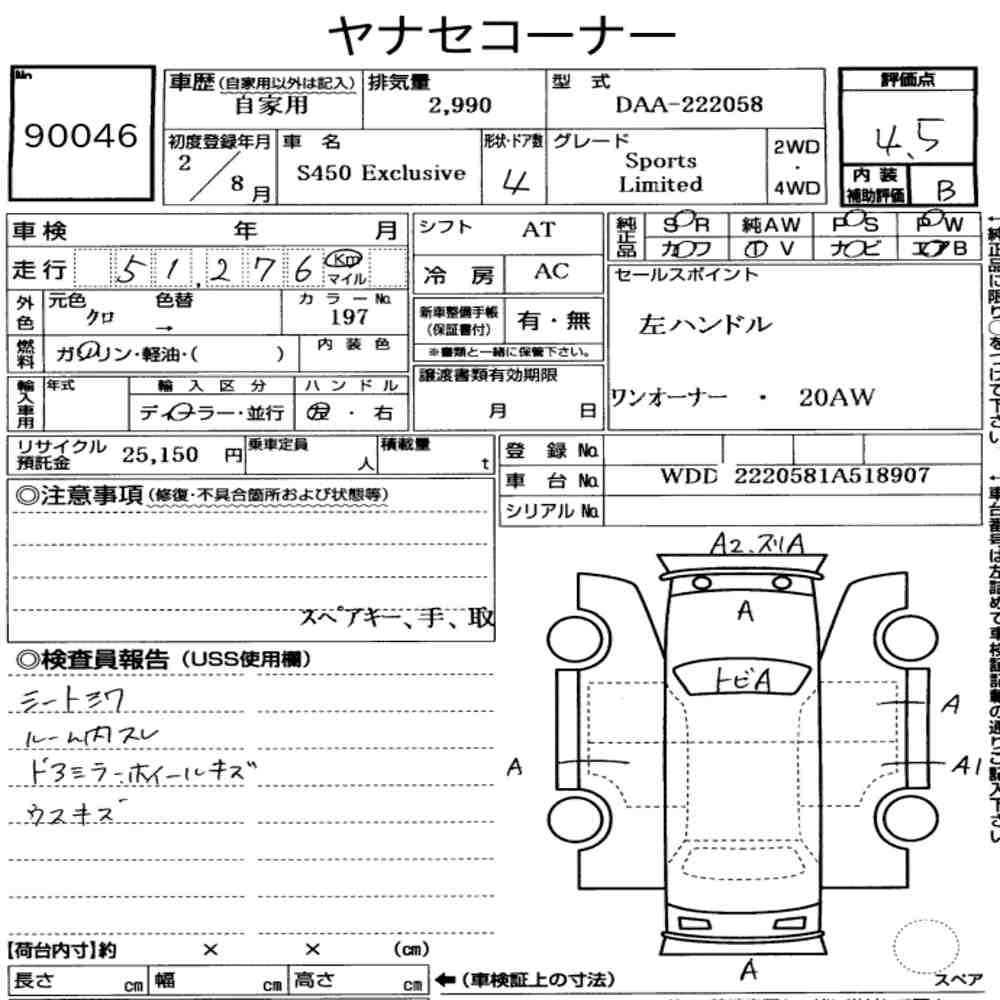 ヤナセコーナー
No
90046
車歴 (自家用以外は記入) 排気量 型 式
自家用 2,990 DAA-222058
初度登録年月 車 名 形状・ドア数 グレード
2 / 8 月 S450 Exclusive 4 Sports Limited 2WD・4WD
評価点
4.5
内装補助評価 B
車検 年 月
走行 51,276 Km マイル
外色 元色 クロ 色替 → カラーNo. 197
燃料 ガソリン・軽油・( ) 内装色
輸入車用 年式 輸入区分 ハンドル
ディーラー・並行 左・右
シフト AT
冷房 AC
新車整備手帳 (保証書付) 有・無
※書類と一緒に保管下さい。
譲渡書類有効期限
月 日
純正品 SR 純AW PS PW
カワ TV ナビ エアB
セールスポイント
左ハンドル
ワンオーナー ・ 20AW
←純正品に限り○をつけて下さい。
リサイクル預託金 25,150 円 乗車定員 人 積載量 t
登録No.
車台No. WDD 2220581A518907
シリアルNo.
←車台番号は左詰めで車検証記載の通りご記入下さい。
◎注意事項 (修復・不具合箇所および状態等)
スペアキー、手、取
◎検査員報告 (USS使用欄)
シートシワ
ルーム内スレ
ドアミラー・ホイールキズ
ウスキズ
A2、スリA
A
トビA
A
A
A1
A
【荷台内寸】約 × × (cm)
長さ cm 幅 cm 高さ cm ←(車検証上の寸法)
スペア